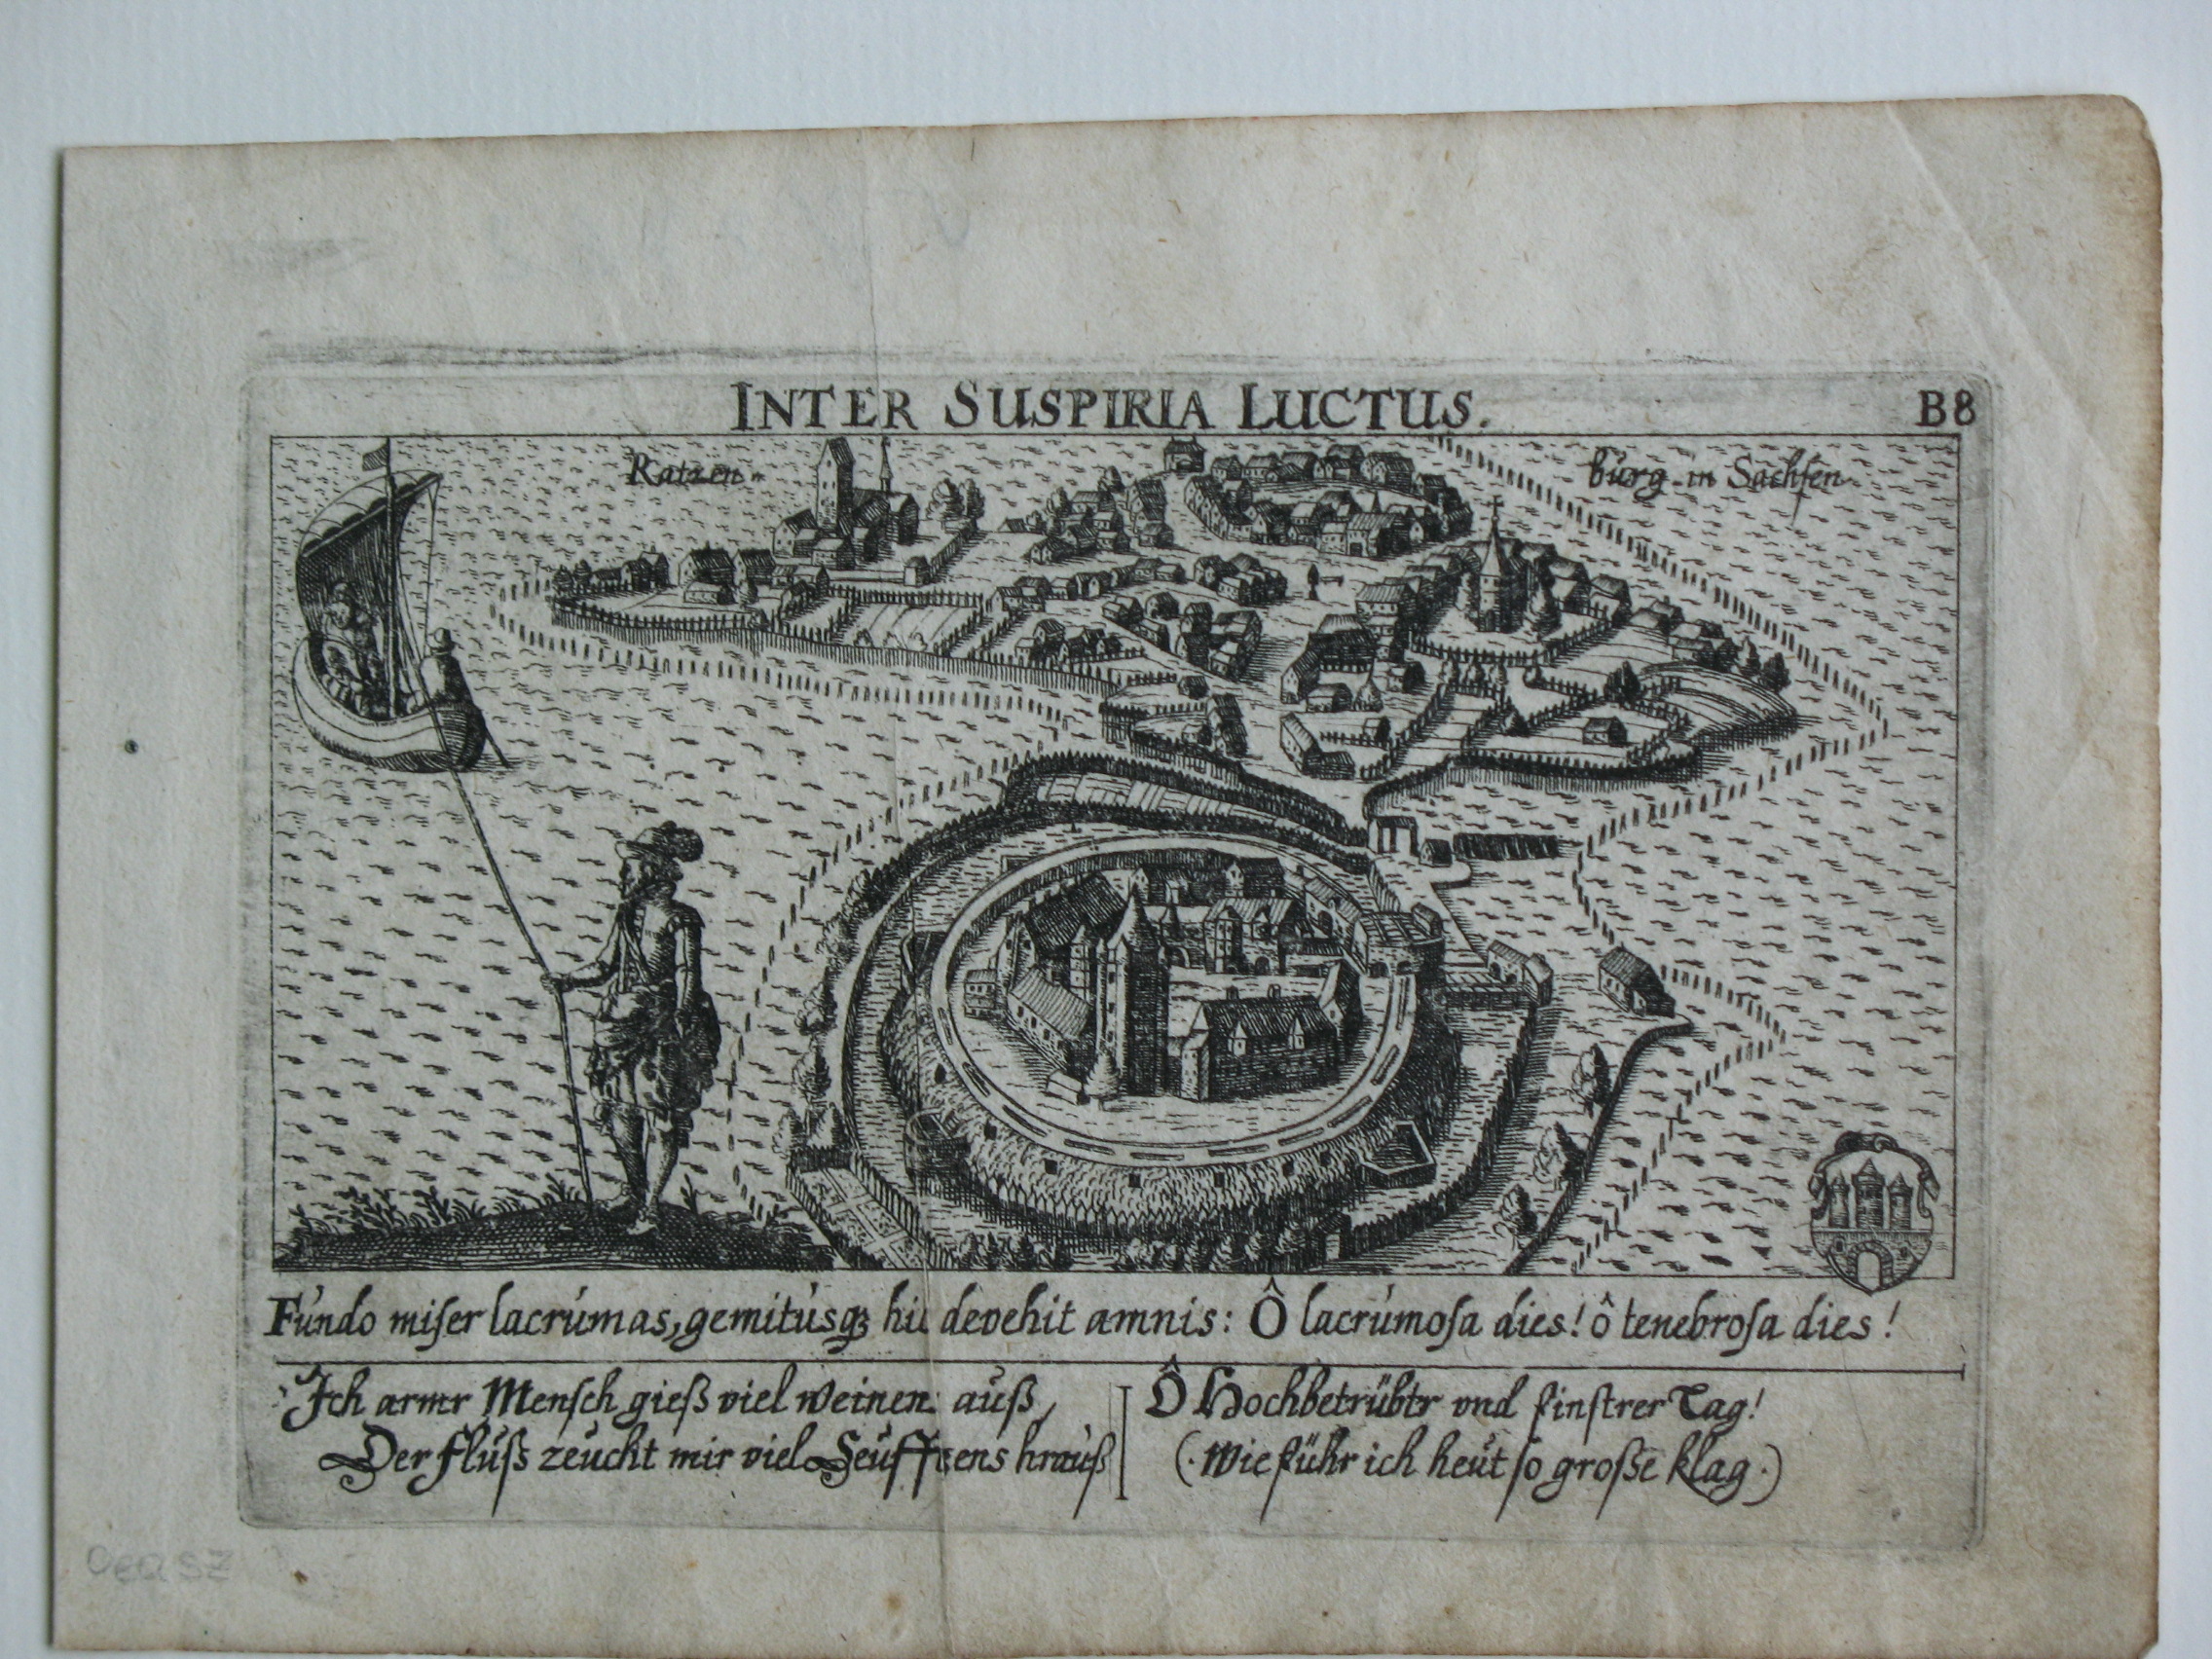 INTER SUSPIRIA LUCTUS.
B8
Ratzen-
burg in Sachsen
Fundo miſer lacrumas, gemitusqꝫ hic devehit amnis: Ô lacrumoſa dies! ô tenebroſa dies!
Ich armr Menſch gieß viel weinen auß,
Der fluß zeucht mir viel Seufftzens hrauß
Ô Hochbetrübtr vnd finſtrer Tag!
(Wie führ ich heut ſo große klag.)